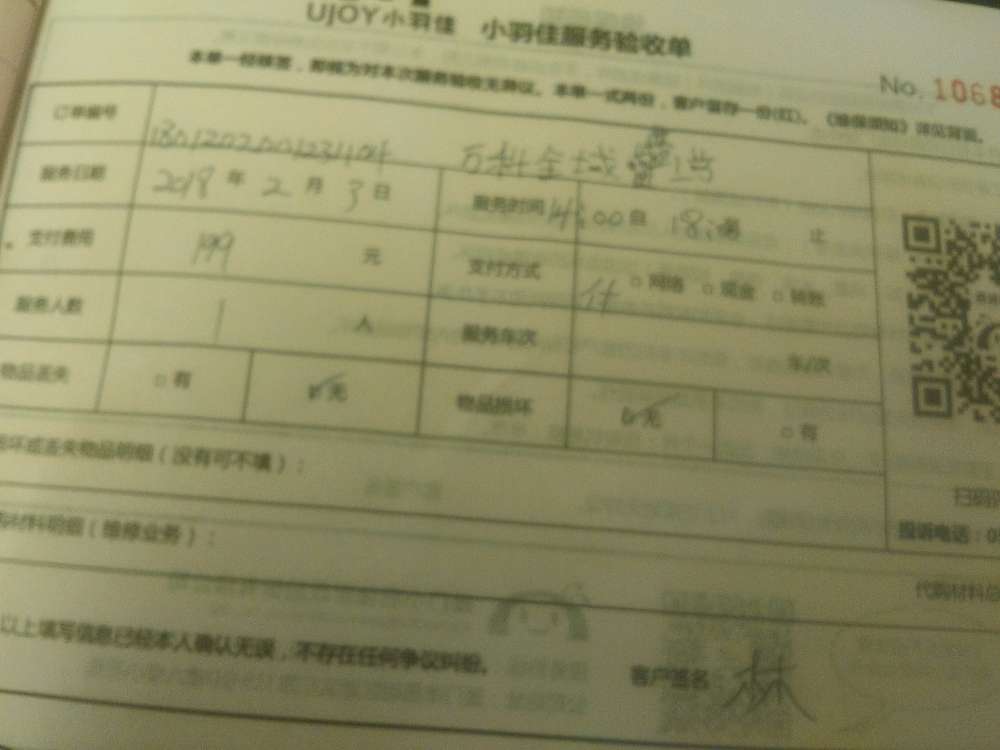 UJOY小羽佳 小羽佳服务验收单
本单一经签署，即视为对本次服务验收无异议。本单一式两份，客户留存一份(红)。《维保须知》详见背面。
No. 1068
订单编号 万科金域
服务日期 2018 年 2 月 3 日 服务时间 14:00 自 18:00 止
支付费用 199 元 支付方式 □ 网络 □ 现金 □ 转账
服务人数 1 人 服务车次 车/次
物品丢失 □ 有 ☑ 无 物品损坏 ☑ 无 □ 有
坏或丢失物品明细（没有可不填）：
扫码
投诉电话：05
材料明细（维修业务）：
代购材料总
以上填写信息已经本人确认无误，不存在任何争议纠纷。
客户签名： 林